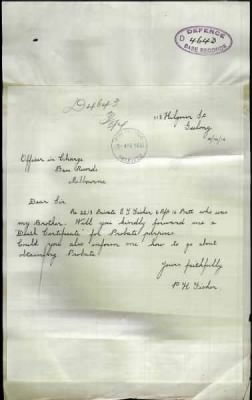 DEFENCE
4643
BASE RECORDS
D4643
Geelong
Officer in Charge
Base Records
Melbourne
Dear Sir
Re 2213 Private Fisher who was
my Brother. Will you kindly forward me a
"Death Certificate" for Probate purposes
Could you also inform me how to go about
Probate
Yours faithfully
H Fisher